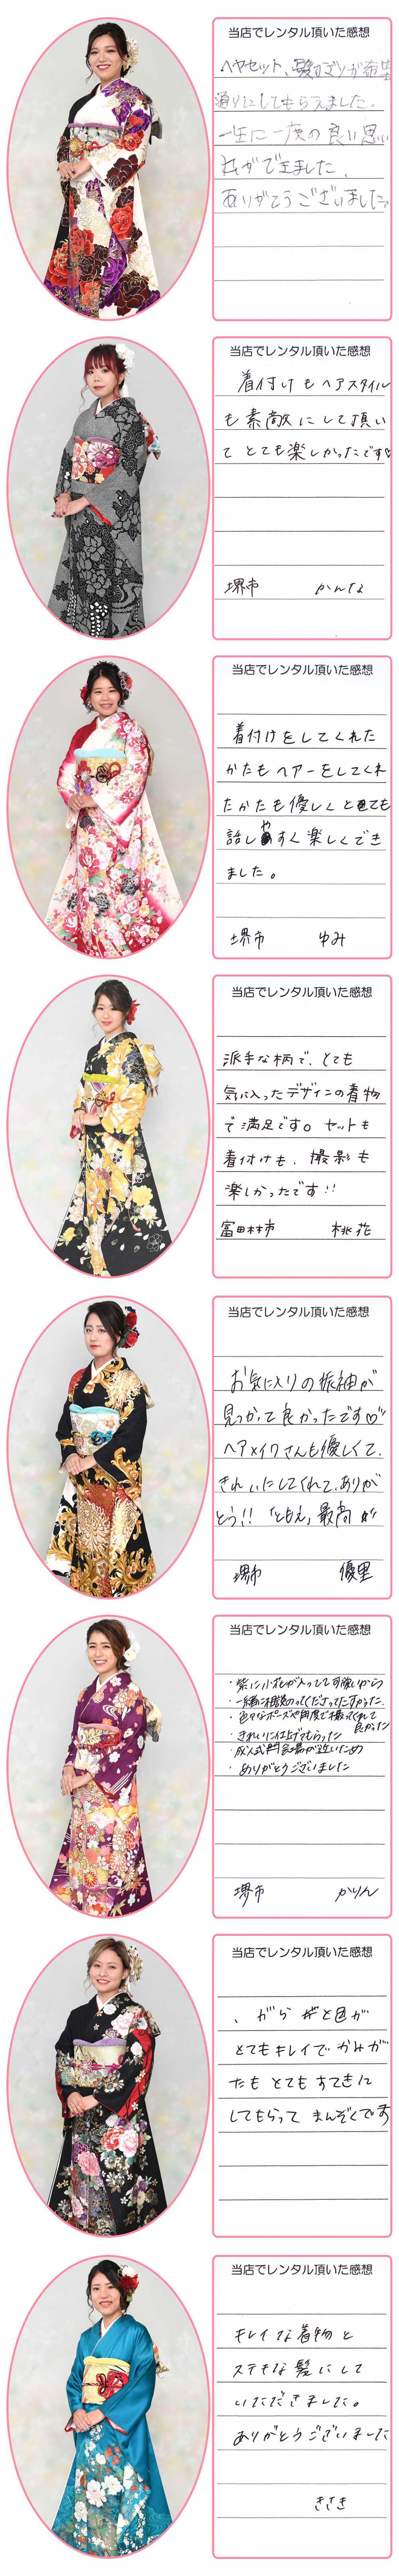 当店でレンタル頂いた感想
ヘヤセット、髪かざりが希望
通りにしてもらえました。
一生に一度の良い思い
出ができました、
ありがとうございました。
当店でレンタル頂いた感想
着付けもヘアスタイル
も素敵にして頂い
てとても楽しかったです♡
堺市 かんな
当店でレンタル頂いた感想
着付けをしてくれた
かたもヘアーをしてくれ
たかたも優しくとても
話しやすく楽しくでき
ました。
堺市 ゆみ
当店でレンタル頂いた感想
派手な柄で、とても
気に入ったデザインの着物
で満足です。セットも
着付けも、撮影も
楽しかったです!!
富田林市 桃花
当店でレンタル頂いた感想
お気に入りの振袖が
見つかって良かったです♡
ヘアメイクさんも優しくて、
きれいにしてくれて、ありが
とう!!「ともえ」最高
堺市 優里
当店でレンタル頂いた感想
・紫に小花が入ってて可愛いから
・一緒に相談のってくださってたすかった。
・色々なポーズや角度で撮ってくれて
良かった
・きれいに仕上げてもらった
・成人式 会場が近いため
・ありがとうございました
堺市 かりん
当店でレンタル頂いた感想
、がらと色が
とてもキレイでかみが
たもとてもすてきに
してもらってまんぞくです
当店でレンタル頂いた感想
キレイな着物と
ステキな髪にして
いただきました。
ありがとうございました
きさき